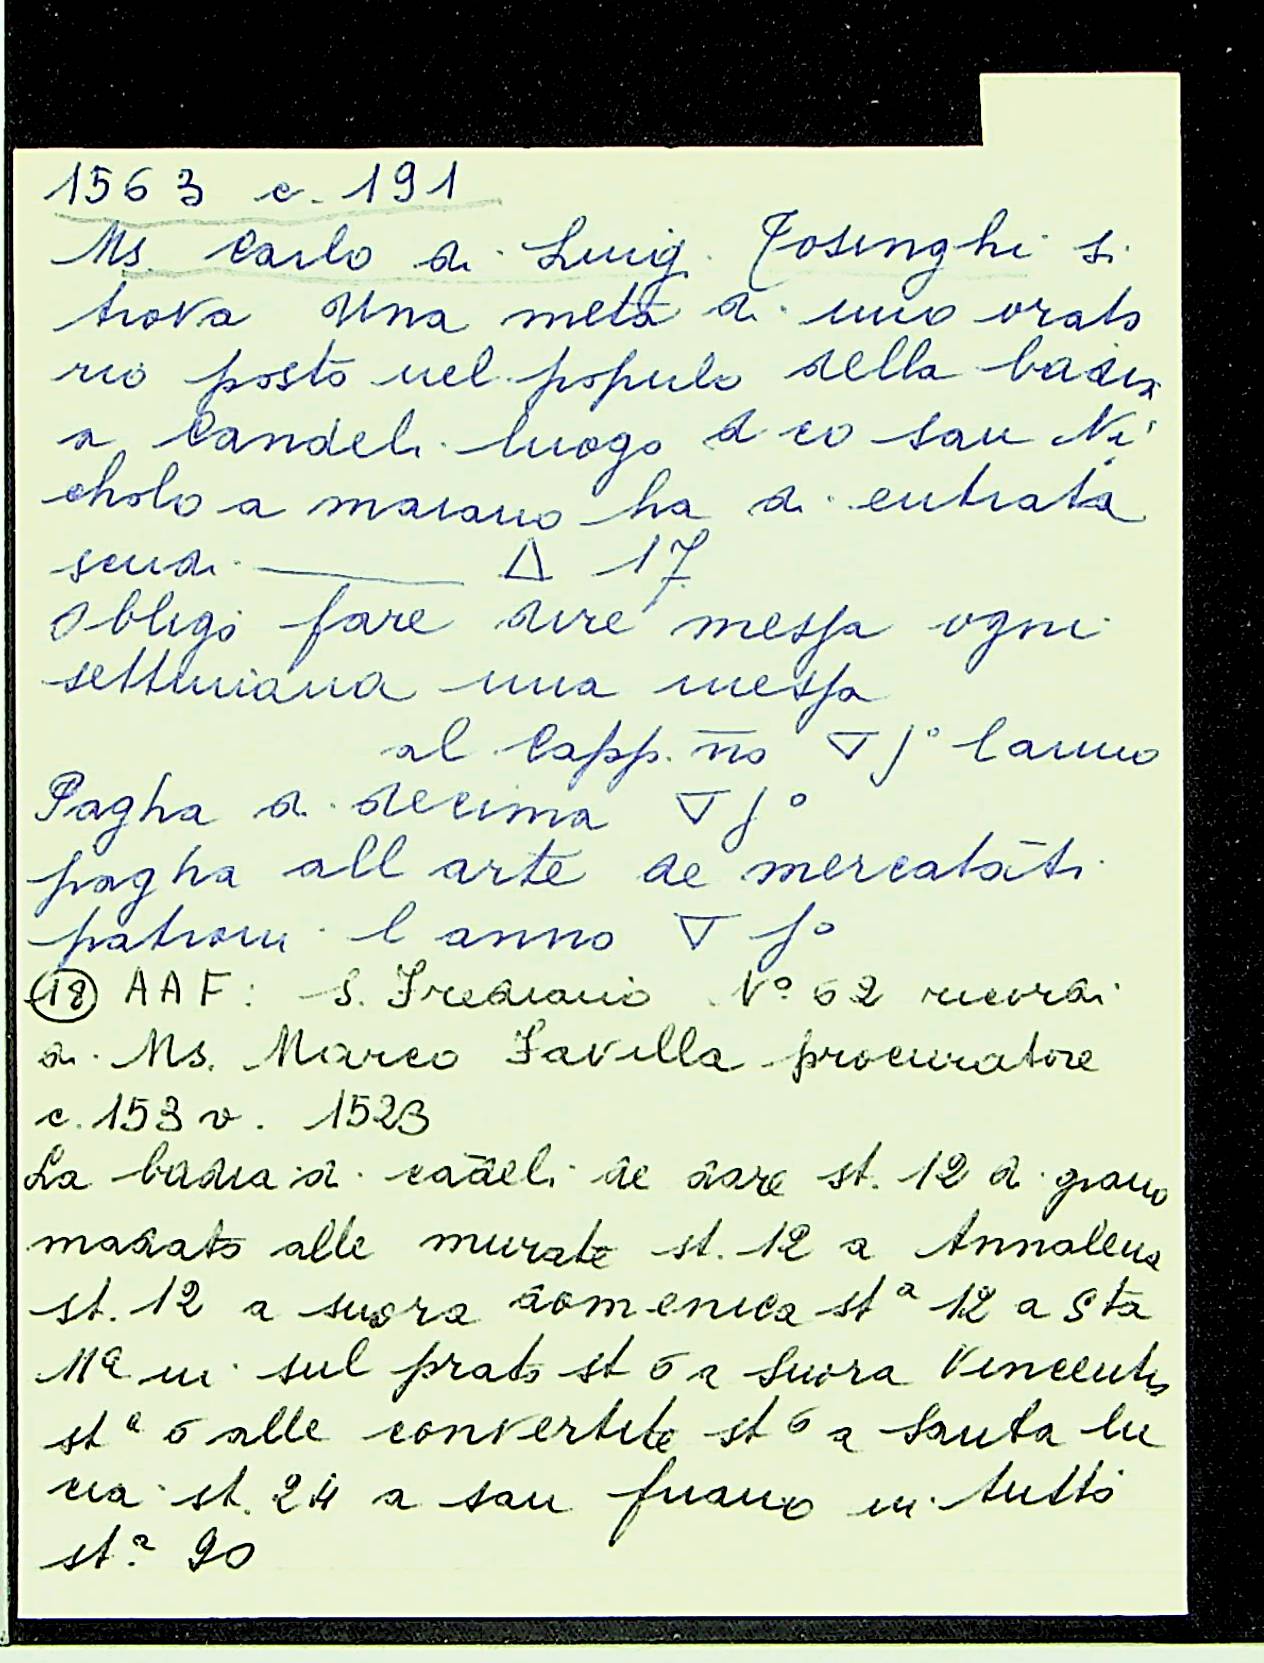 1563 c. 191
Ms. Carlo di Luigi Tosinghi si
trova una metà di uno orato
rio posto nel populo della badia
a Candeli luogo dco san Ni
cholo a marano ha di entrata
scudi ——— Δ 17
Obligo fare dire messa ogni
settimana una messa
al Capp.no ▽ j° lanno
Pagha di decima ▽ j°
pagha all arte de mercatāti
patroni l anno ▽ j°
(18) AAF: S. Frediano N° 62 ricordi
di Ms. Marco Favilla procuratore
c. 153 v. 1523
La badia di cādeli de dare st. 12 di grano
mādato alle murate st. 12 a Annalena
st. 12 a suora domenica stª 12 a Sta
Mª in sul prato st 6 a Suora Vincentia
stª 6 alle convertite st 6 a Santa lu
cia st. 24 a san friano in tutto
st.ª 90